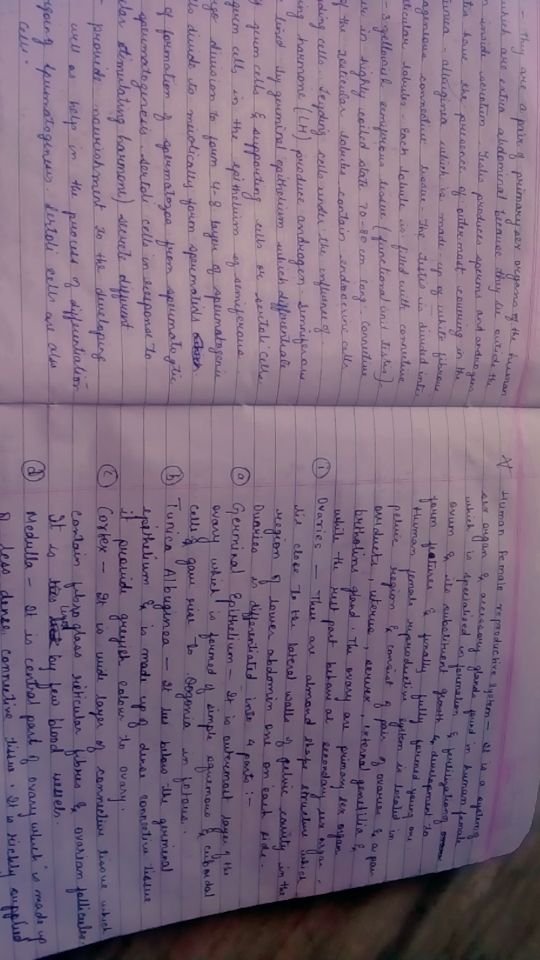 - They are a pair of primary sex organs of the human
which are extra abdominal because they lie outside the
inside scrotum. Testis produces sperms and androgen
have the presence of outermost covering in the
albuginea which is made up of white fibrous
connective tissue. The testis is divided into
lobule. Each lobule is filled with connective
-3 seminiferous (functional unit testis).
is highly coiled state 70-80 cm long. Connective
of the testicular lobules contain endocrine cells
cells. Leydig cells under the influence of
hormone (LH) produce androgen. Seminiferous
lined by germinal epithelium which differentiate
germ cells & supporting cells or sertoli cells.
germ cells in the epithelium of seminiferous
division to form 4-8 layer of spermatogenic
divide to meiotically form spermatids
of formation of spermatozoa from spermatogonia
spermatogenesis. Sertoli cells in respond to
stimulating harmone) secrete different
provide nourishment to the developing
well as help in the process of differentiation
spermatogenesis. Sertoli cells are also
cells.
Human female reproductive system - It is a system
sex organ & accessory glands found in human female
which is specialised in formation & fertilization
ovum & its subsequent growth & development to
form features & finally fully formed young one
Human female reproductive system is located in
pelvic region & consist of pair of ovaries & a pair
oviducts, uterus, cervix, external genetilia &
bartholine gland. The ovary are primary sex organ
while the rest part behave as secondary sex organ.
① Ovaries - These are almond shape structure which
lie close to the lateral walls of pelvic cavity in the
region of lower abdomen one on each side.
Ovaries is differentiated into 4 parts :-
ⓐ Germinal Epithelium - It is outermost layer of the
ovary which is formed of simple squamous & cuboidal
cells & gave rise to Oogonia in fetous.
ⓑ Tunica Albuginea - It lies below the germinal
epithelium & is made up of dense connective tissue
it provide greyish colour to ovary.
ⓒ Cortex - It is next layer of connective tissue which
contain fibroglass reticular fibres & ovarian follicules.
It is by few blood vessels.
ⓓ Medulla - It is central part of ovary which is made up
of less dense connective tissue. It is richly supplied